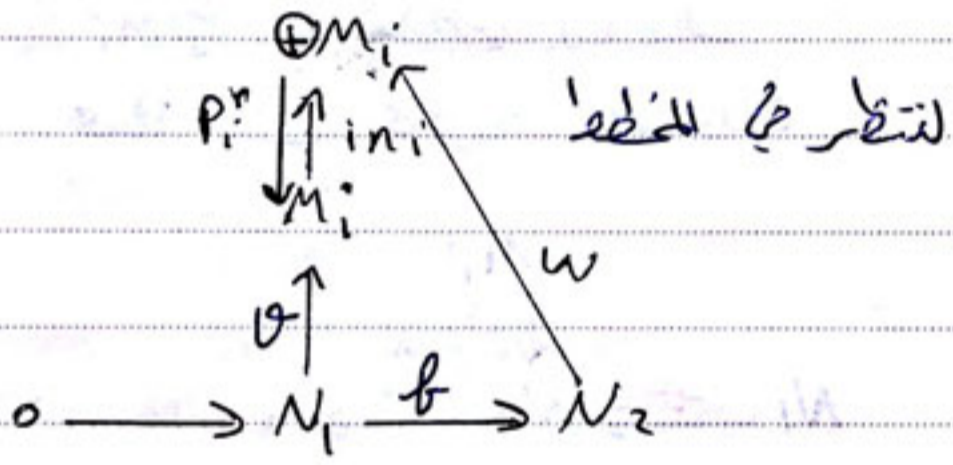 ⊕Mᵢ
Pᵢʳ inᵢ لننظر في المخطط
Mᵢ
w
θ
0 → N₁ f → N₂